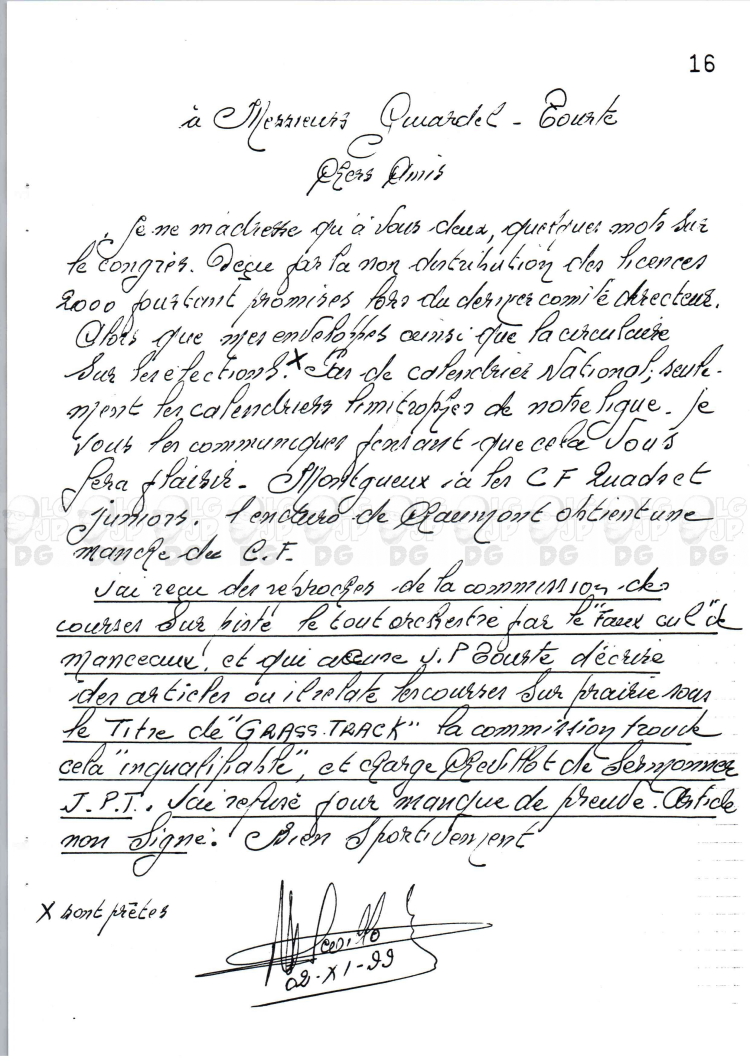 16
à Messieurs Quardel - Tourte
Chers Amis
Je ne m'adresse qu'à Vous deux, quelques mots sur
le congrès. Deçu par la non distribution des licences
2000 pourtant promises lors du dernier comité directeur.
Alors que mes enveloppes ainsi que la circulaire
Sur les élections. X Pas de calendrier National, seule-
ment les calendriers limitrophes de notre ligue. Je
Vous les communiques pensant que cela Vous
fera plaisir - Montgueux à les C F Quads et
juniors. l'enduro de Chaumont obtient une
manche du C.F.
J'ai reçu des reproches de la commission des
courses Sur piste le tout orchestré par le "Faux cul" de
Manceaux, et qui accuse J.P Tourte d'écrire
des articles ou il relate les courses Sur prairie sous
le Titre de "GRASS.TRACK" la commission trouve
cela "inqualifiable", et charge Chevillot de Sermonner
J.P.T. J'ai refusé pour manque de preuve. Article
non Signé. Bien Sportivement
X sont prêtes
02-XI-99
LG
JP
DG